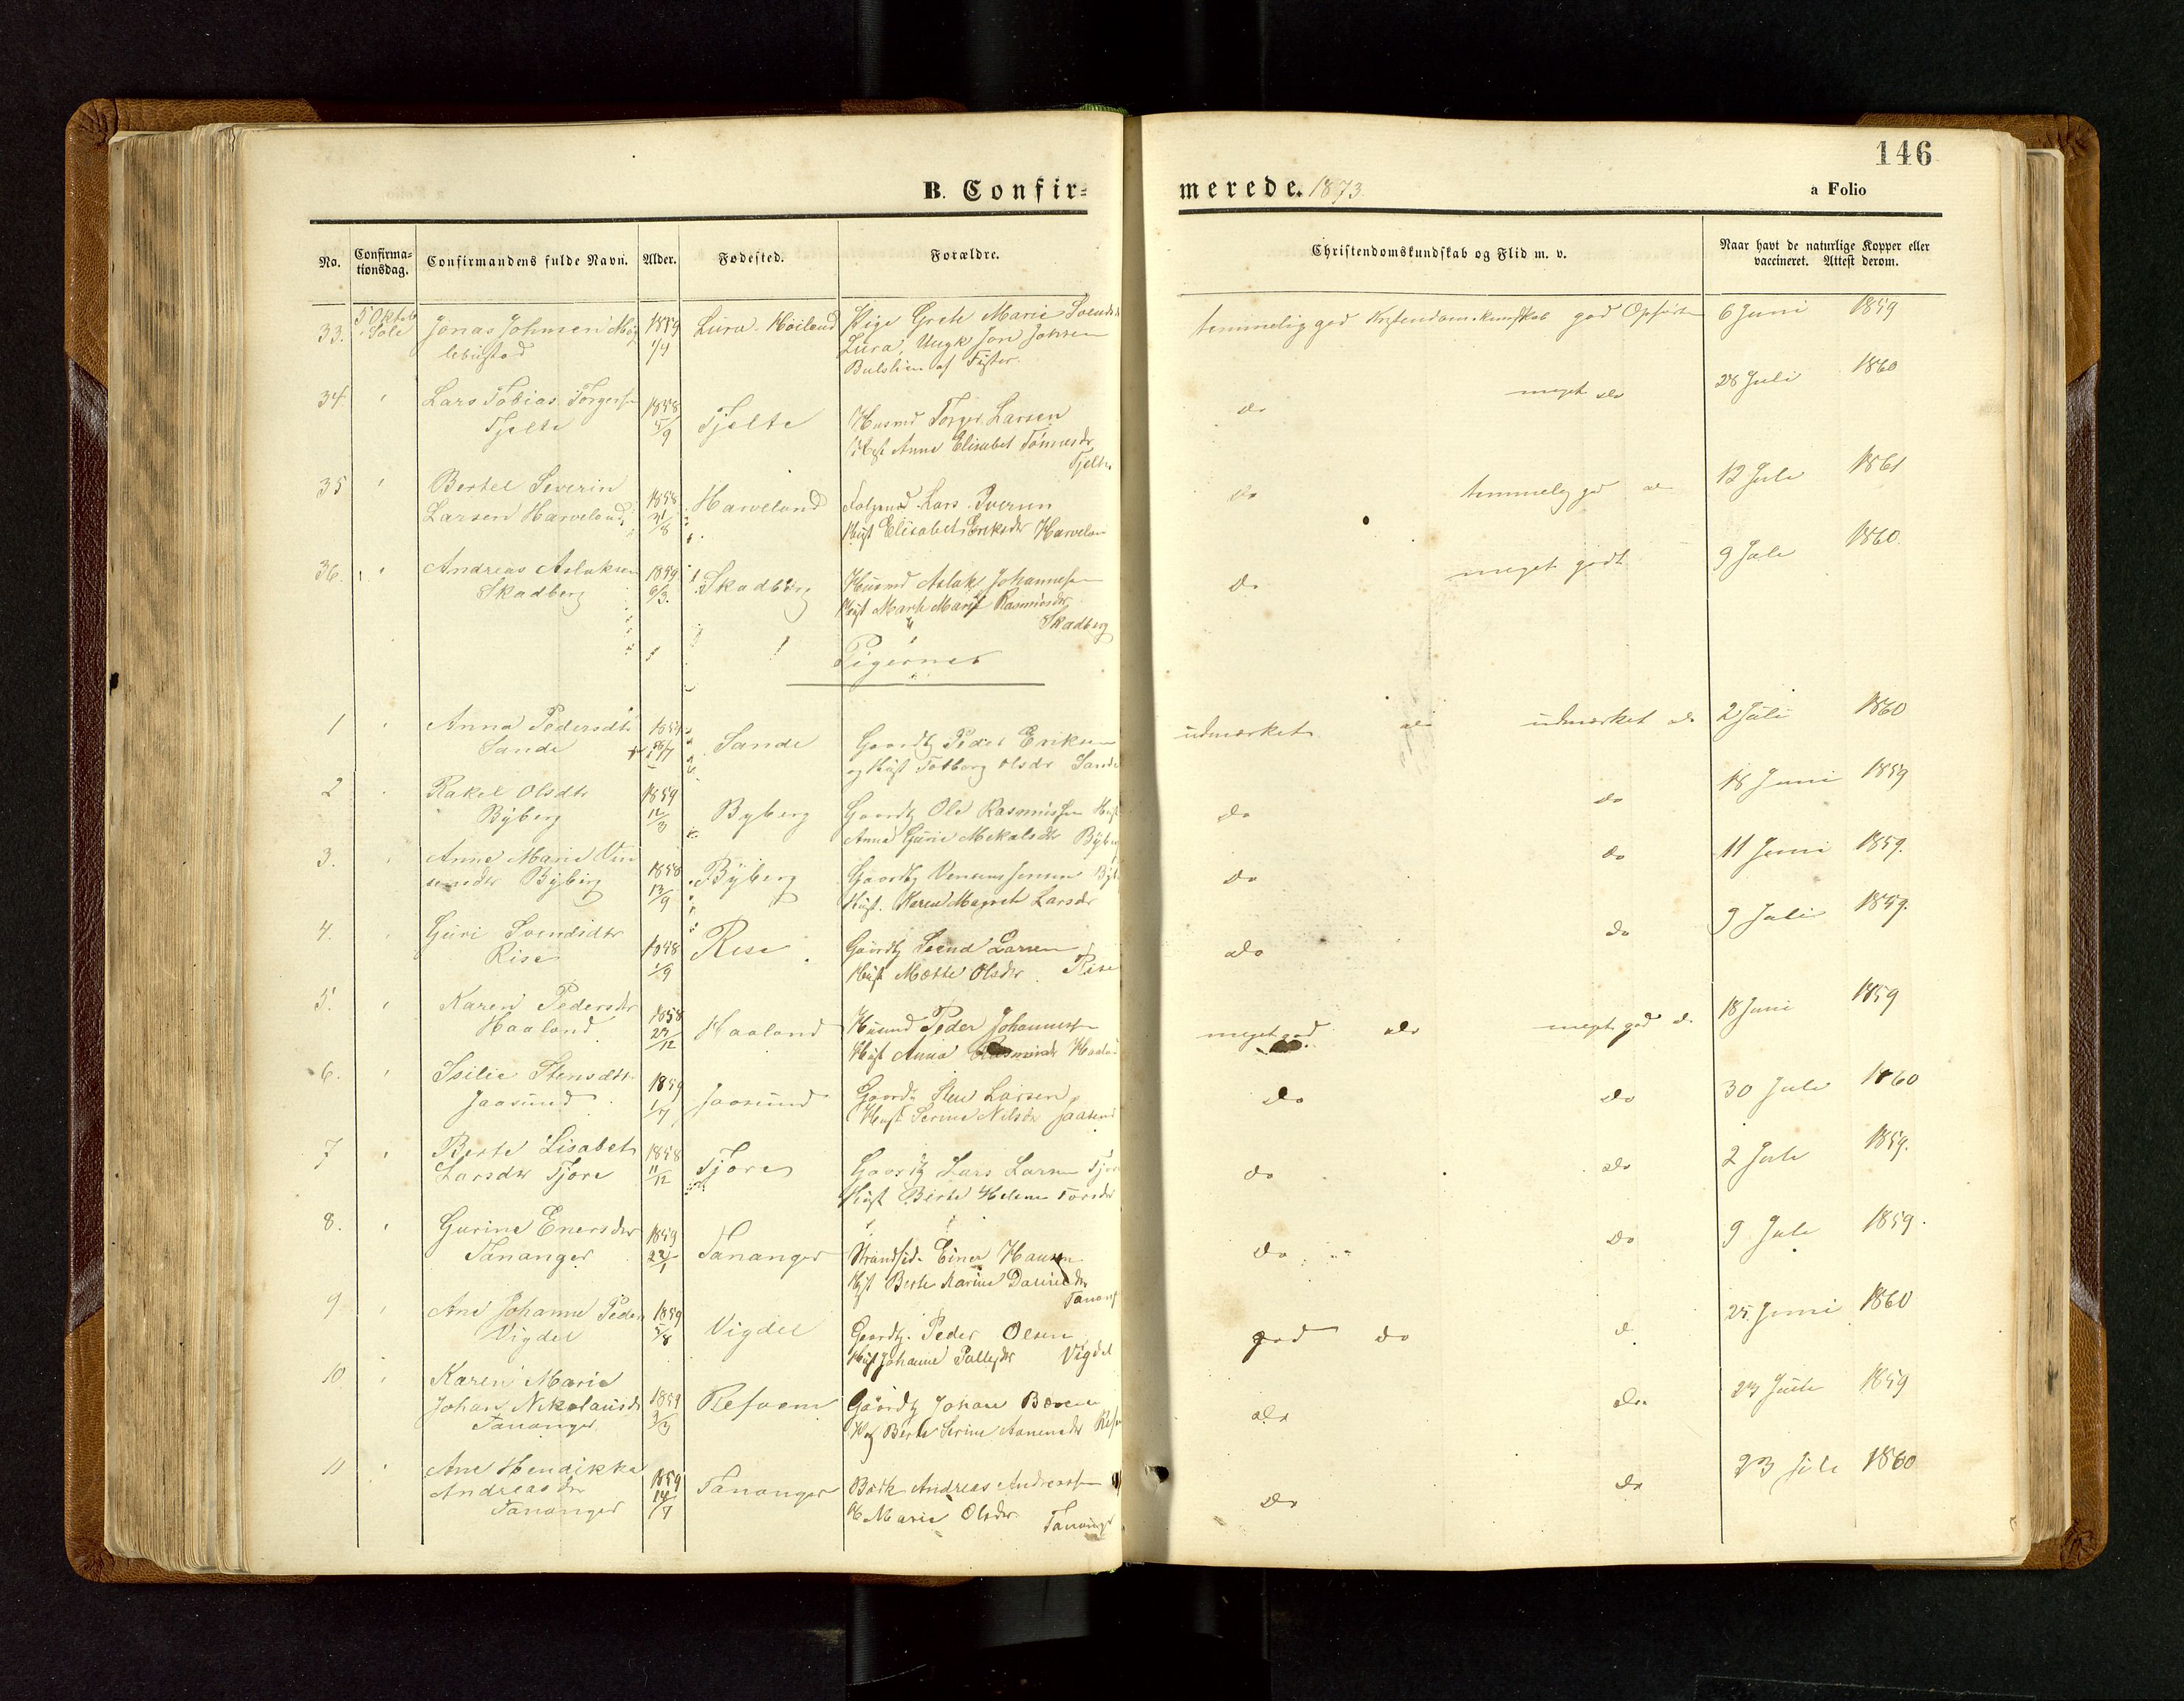 146
B. Confir-
merede. 1873.
a Folio
No.
Confirma-
tionsdag.
Confirmandens fulde Navn.
Alder.
Fødested.
Forældre.
Christendomskundskab og Flid m. v.
Naar havt de naturlige Kopper eller
vaccineret. Attest derom.
33. 5 Oktob Sole Jonas Johnsen 1859 1/4 Lura Høiland Pige Grete Marie
Lura, Ungk Jon Johnsen
af Fister.
temmelig god Kristendomskundskab god Opførsel 6 Juni 1859
34. " Lars Tobias Torgersen
Tjelte 1858 5/9 Tjelte Husmd Torger Larsen
Hust Anne Elisabet Tønnesdr
Tjelte
do meget do 28 Juli 1860
35 " Bertel Severin
Larsen Harveland 1858 31/8 Harveland Lars Iversen
Hust Elisabet Eriksdr Harveland
do temmelig god do 12 Juli 1861
36. " Andreas Aslaksen
Skadberg 1859 6/3. Skadberg Husmd Aslak Johannesen
Hust Marte Marie Rasmusdr
Skadberg
do meget godt 9 Juli 1860.
Pigerner
1 " Anna Pedersdtr
Sande 1859 Sande Gaardbr Peder Eriksen
og Hust Tolborg Olsdr Sande
udmærket do udmærket do 2 Juli 1860
2 " Rakel Olsdtr
Byberg 1859 12/3 Byberg Gaardbr Ole Rasmussen Hust
Anne Gurie Mikalsdtr Byberg
do do 18 Juni 1859
3. " Anne Marie
Byberg 1858 13/9 Byberg Gaardbr Jensen
Hust. Karen Magrete Larsdr
do do 11 Juni 1859.
4. " Guri Svendsdtr
Rise 1858 1/9 Rise Gaardbr Svend Larsen
Hust Mætte Olsdr Rise
do do 9 Juli 1859.
5. " Karen Pedersdtr
Haaland 1858 22/12 Haaland Husmd Peder Johannesen
Hust Anna Rasmusdr Haaland
meget god do meget god d. 18 Juni 1859
6. " Stensdtr
Jaasund 1859 1/7 Jaasund Gaardbr Sten Larsen
Hust Serine Nilsdr Jaasund
do do 30 Juli 1860
7 " Berte Lisabet
Larsdtr Tjore 1858 11/12 Tjore Gaardbr Lars Larsen Tjore
Hust Birte Helene Torsdr
do do 2 Juli 1859.
8. " Gurine Enersdtr
Tananger 1859 23/1 Tananger Strandsid. Einer Hansen
Hust Berte Karine
Tanang
do do 9 Juli 1859.
9 " Ane Johanne Peders
Vigdel 1859 5/8 Vigdel Gaardbr. Peder Olsen
Hust Johanne Pallesdtr Vigdel
god do d. 25 Juni 1860
10 " Karen Marie
Johan Nikolaisdr
Tananger 1859 3/3 Refsnes Gaardbr Johan
Hust Berte Serine
do do 23 Juli 1859
11 " Ane Hendikka
Andreasdtr
Tananger 1859 14/7 Tananger Andreas Andreassen
H Marie Olsdtr. Tananger
do do 23 Juli 1860